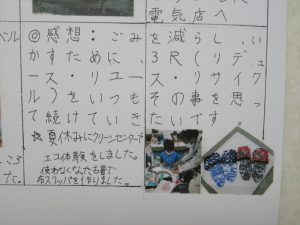 電気店へ
ベル
◎感想：ごみを減らし、い
かすために、3R(リデュ
ース・リユース・リサイク
ル)をいつもその事を思っ
て続けていきたいです。
☆夏休みにクリーンセンターで
エコ体験をしました。
使わなくなった古着で
布スリッパを作りました。
23
た。